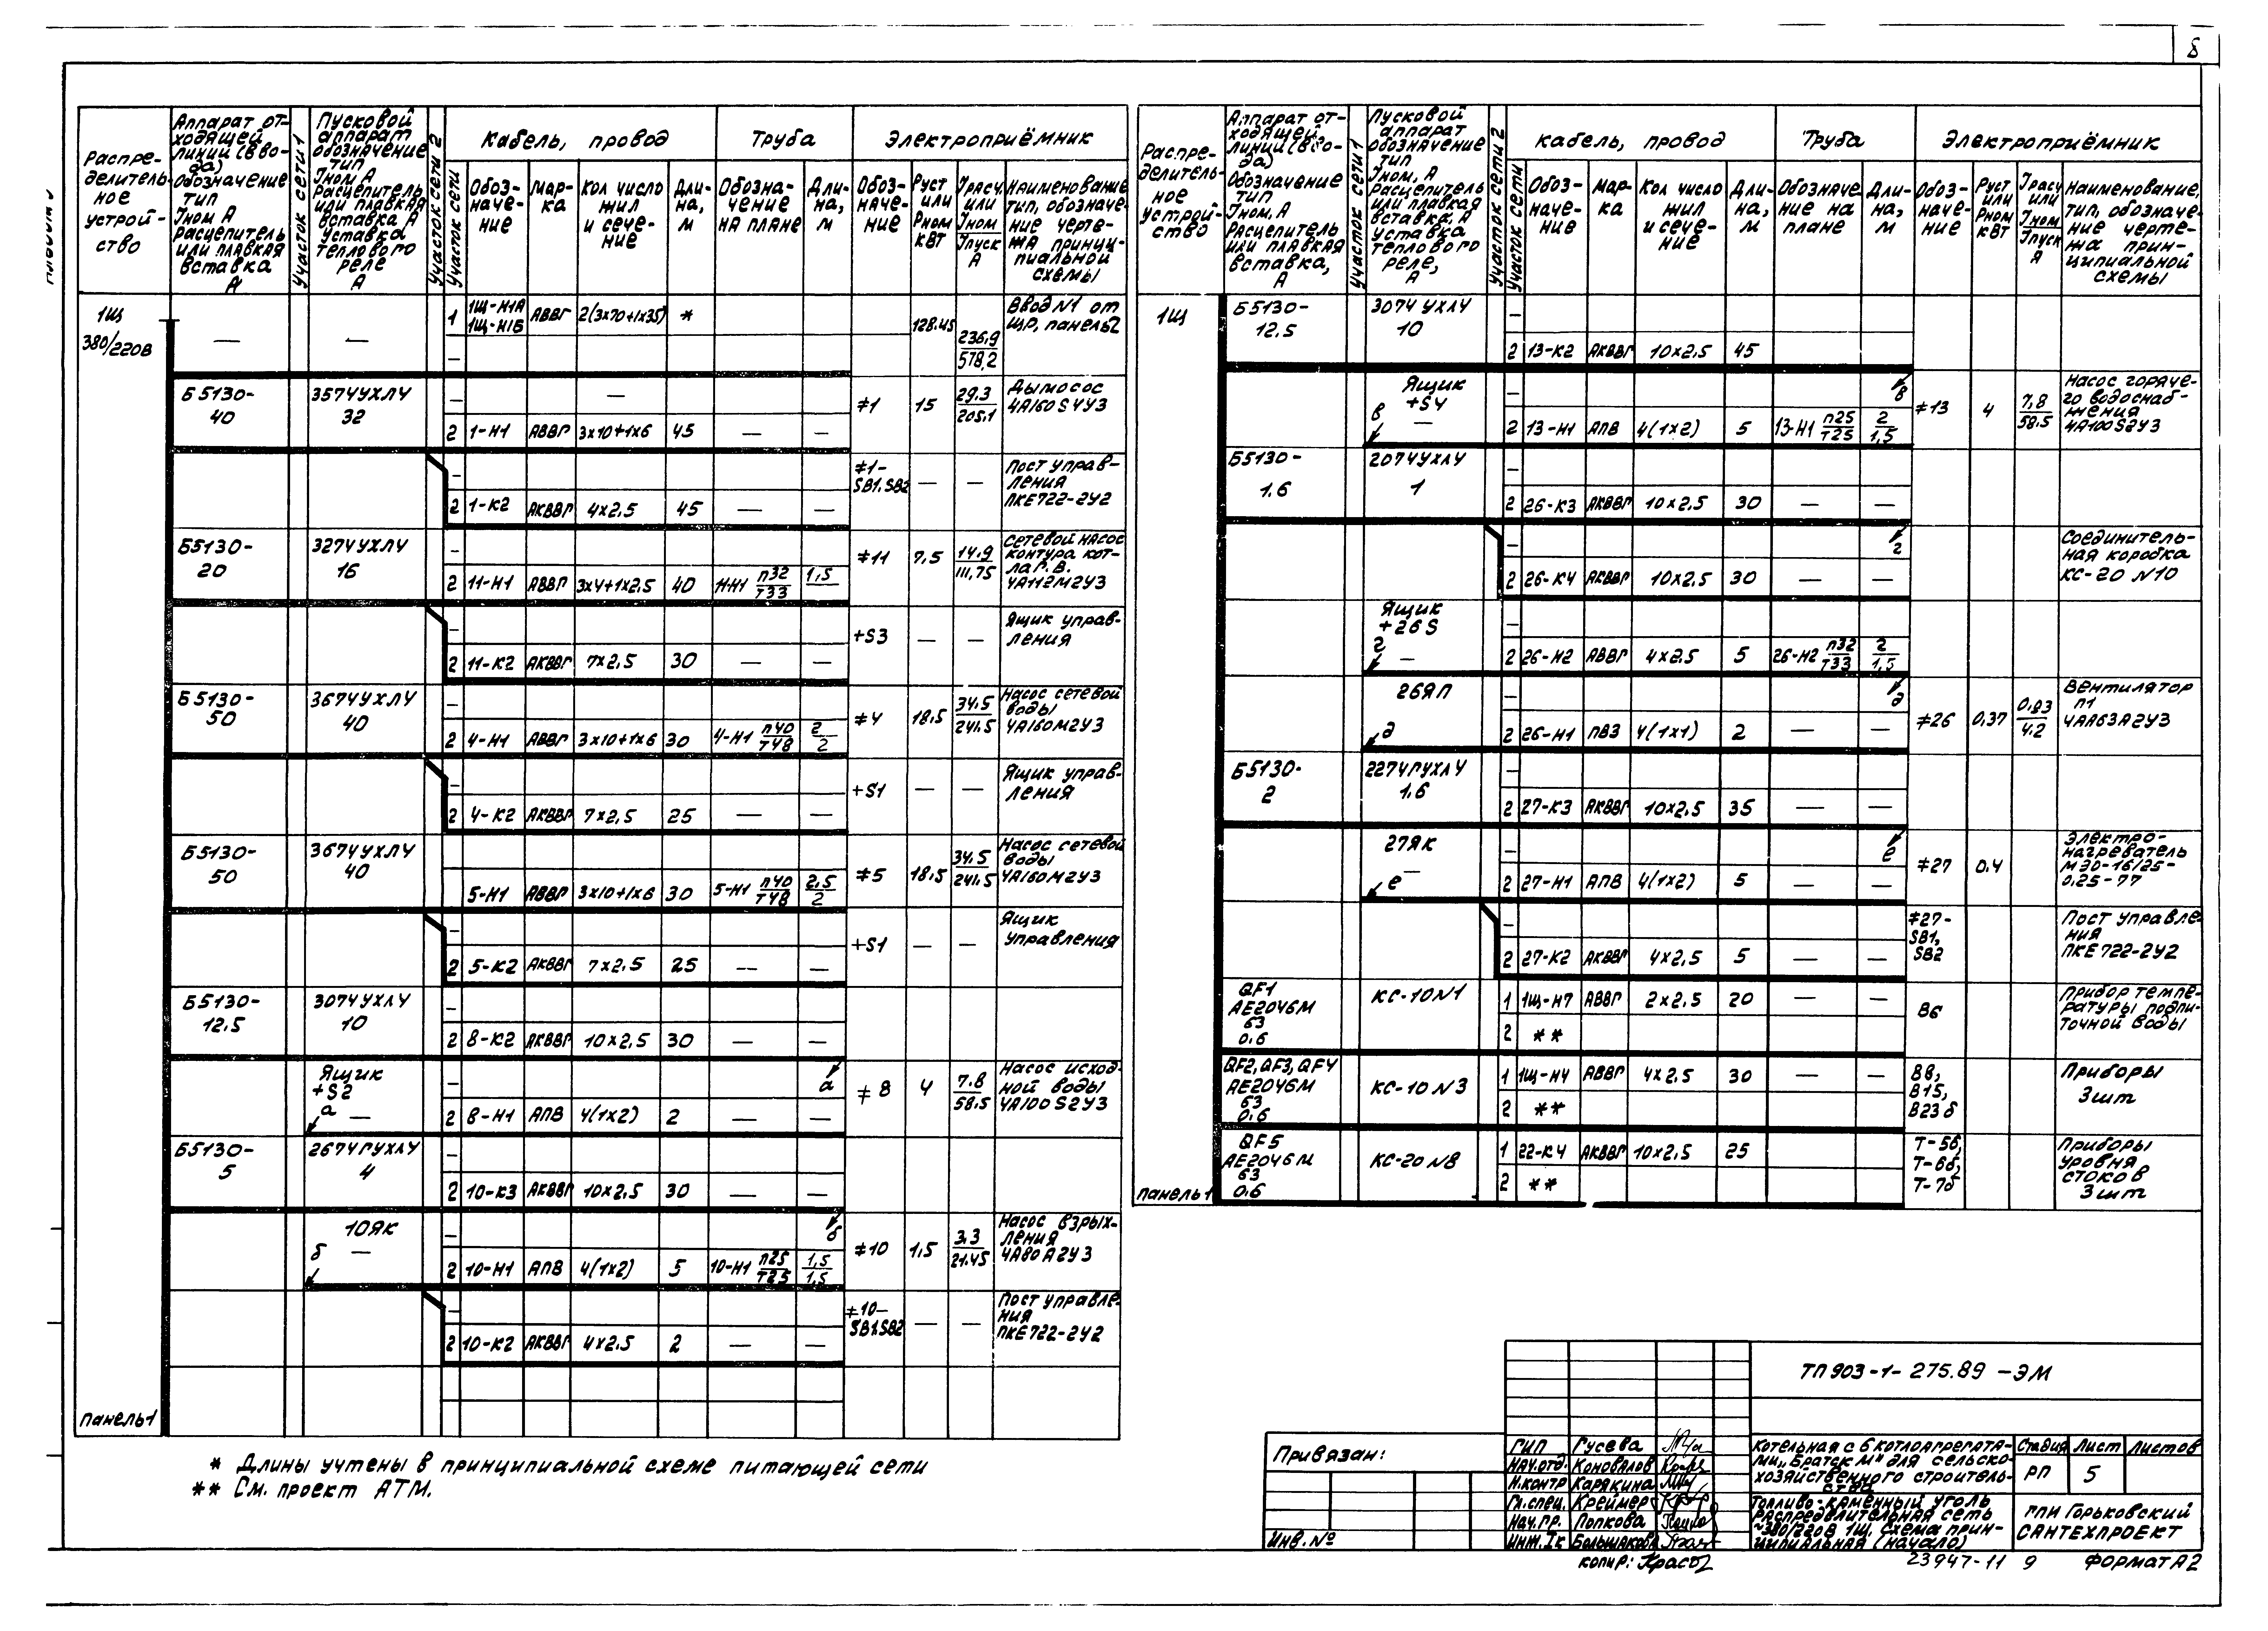 8
Распре-
делитель-
ное
устрой-
ство
Аппарат от-
ходящей
линии (вво-
да)
Обозначение
тип
Iном А
Расцепитель
или плавкая
вставка
А
Участок сети 1
Пусковой
аппарат
обозначение
тип
Iном А
Расцепитель
или плавкая
вставка А
уставка
теплового
реле
А
Участок сети 2
Участок сети
Кабель, провод
Обоз-
наче-
ние
Мар-
ка
Кол число
жил
и сече-
ние
Дли-
на,
м
Труба
Обозна-
чение
на плане
Дли-
на,
м
Электроприёмник
Обоз-
наче-
ние
Руст
или
Рном
кВт
Iрасч
или
Iном
Iпуск
А
Наименование
тип, обозначе-
ние черте-
жа принци-
пиальной
схемы
1Щ
380/220В
— —
1 1Щ-Н1А
1Щ-Н1Б АВВГ 2(3х70+1х35) *
128.45 236,9
578,2
Ввод N1 от
ЩР, панель2
Б5130-
40
3574УХЛ4
32
—
2 1-Н1 АВВГ 3х10+1х6 45 — —
≠1 15 29.3
205.1
Дымосос
4А160S4У3
2 1-К2 АКВВГ 4х2.5 45 — —
≠1-
SB1.SB2 — —
Пост управ-
ления
ПКЕ722-2У2
Б5130-
20
3274УХЛ4
16
2 11-Н1 АВВГ 3х4+1х2.5 40 11-Н1 п32
т33 1,5
≠11 7,5 14.9
111,75
Сетевой насос
контура кот-
ла Г.В.
4А112М2У3
2 11-К2 АКВВГ 7х2,5 30 — —
+S3 — —
Ящик управ-
ления
Б5130-
50
3674УХЛ4
40
2 4-Н1 АВВГ 3х10+1х6 30 4-Н1 п40
т48 2
2
≠4 18,5 34,5
241.5
Насос сетевой
воды
4А160М2У3
2 4-К2 АКВВГ 7х2,5 25 — —
+S1 — —
Ящик управ-
ления
Б5130-
50
3674УХЛ4
40
5-Н1 АВВГ 3х10+1х6 30 5-Н1 п40
т48 2,5
2
≠5 18,5 34.5
241.5
Насос сетевой
воды
4А160М2У3
2 5-К2 АКВВГ 7х2,5 25 — —
+S1 — —
Ящик
управления
Б5130-
12.5
3074УХЛ4
10
2 8-К2 АКВВГ 10х2,5 30 — —
Ящик
+S2
а —
а
2 8-Н1 АПВ 4(1х2) 2 — —
≠8 4 7.8
58.5
Насос исход-
ной воды
4А100S2У3
Б5130-
5
2674ГУХЛ4
4
2 10-К3 АКВВГ 10х2,5 30 — —
10ЯК
б —
б
2 10-Н1 АПВ 4(1х2) 5 10-Н1 п25
т25 1,5
1,5
≠10 1,5 3.3
21.45
Насос взрых-
ления
4А80А2У3
2 10-К2 АКВВГ 4х2.5 2 — —
≠10—
SB1.SB2 — —
Пост управле-
ния
ПКЕ722-2У2
панель1
* Длины учтены в принципиальной схеме питающей сети
** См. проект АТМ.
Распре-
делитель-
ное
устрой-
ство
Аппарат от-
ходящей
линии (вво-
да)
Обозначение
тип
Iном, А
Расцепитель
или плавкая
вставка,
А
Участок сети 1
Пусковой
аппарат
обозначение
тип
Iном, А
Расцепитель
или плавкая
вставка, А
уставка
теплового
реле,
А
Участок сети 2
Участок сети
Кабель, провод
Обоз-
наче-
ние
Мар-
ка
Кол число
жил
и сече-
ние
Дли-
на,
м
Труба
Обозначе-
ние на
плане
Дли-
на,
м
Электроприёмник
Обоз-
наче-
ние
Руст
или
Рном
кВт
Iрасч
или
Iном
Iпуск
А
Наименование,
тип, обозначе-
ние черте-
жа прин-
ципиальной
схемы
1Щ
Б5130-
12.5
3074УХЛ4
10
2 13-К2 АКВВГ 10х2,5 45
Ящик
+S4
в —
в
2 13-Н1 АПВ 4(1х2) 5 13-Н1 п25
т25 2
1,5
≠13 4 7,8
58.5
Насос горяче-
го водоснаб-
жения
4А100S2У3
Б5130-
1.6
2074УХЛ4
1
2 26-К3 АКВВГ 10х2,5 30 — —
г
2 26-К4 АКВВГ 10х2,5 30 — —
Соединитель-
ная коробка
КС-20 N10
Ящик
+26S
г —
2 26-Н2 АВВГ 4х2.5 5 26-Н2 п32
т33 2
1,5
26ЯП
д
д
2 26-Н1 ПВ3 4(1х1) 2 — —
≠26 0,37 0,93
4.2
Вентилятор
п1
4АА63А2У3
Б5130-
2
2274ГУХЛ4
1.6
2 27-К3 АКВВГ 10х2,5 35 — —
27ЯК
е —
е
2 27-Н1 АПВ 4(1х2) 5 — —
≠27 0.4
Электро-
нагреватель
МЭО-16/25-
0,25-77
2 27-К2 АКВВГ 4х2,5 5 — —
≠27-
SB1,
SB2
Пост управле-
ния
ПКЕ722-2У2
QF1
АЕ2046М
63
0.6
КС-10N1
1 1Щ-Н7 АВВГ 2х2.5 20 — —
2 **
В6
Прибор темпе-
ратуры подпи-
точной воды
QF2, QF3, QF4
АЕ2046М
63
0.6
КС-10 N3
1 1Щ-Н4 АВВГ 4х2.5 30 — —
2 **
В8,
В15,
В23б
Приборы
3шт
QF5
АЕ2046М
63
0.6
КС-20 N8
1 22-К4 АКВВГ 10х2,5 25
2 **
Т-5б,
Т-6б,
Т-7б
Приборы
уровня
стоков
3шт
панель1
ТП903-1-275.89 —ЭМ
Привязан:
Инв. №
ГИП Гусева
Нач.отд. Коновалов
Н.контр Карякина
Гл.спец. Креймер
Нач.гр. Попкова
Инж. Iк Большакова
Котельная с 6 котлоагрегата-
ми „Братск М" для сельско-
хозяйственного строитель-
ства
Стадия Лист Листов
РП 5
Топливо-каменный уголь
Распределительная сеть
~380/220В 1Щ. Схема прин-
ципиальная (начало)
ГПИ Горьковский
САНТЕХПРОЕКТ
копир:
23947-11 9 Формат А2